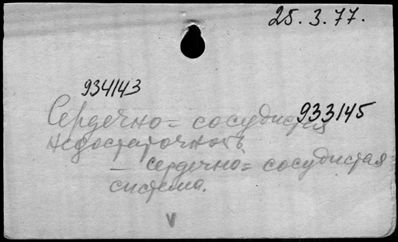 25. 3. 77.
934143
Сердечно= сосудистая
933145
недостаточность
– сердечно= сосудистая
система.
V